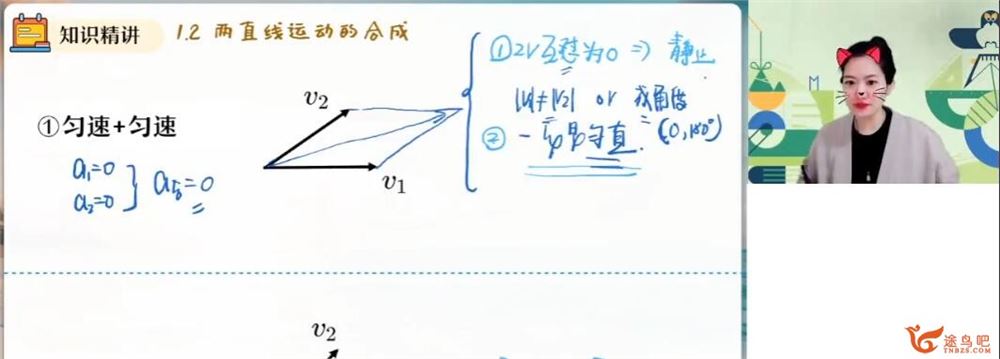 知识精讲 1.2 两直线运动的合成
①匀速+匀速
a₁=0
a₂=0
a合=0
v₂
v₁
①2V互怼为0 => 静止
|V₁|≠|V₂| or 成角度
② 一般即匀直. (0,180°)
v₂
途鸟吧
TNBZS.COM